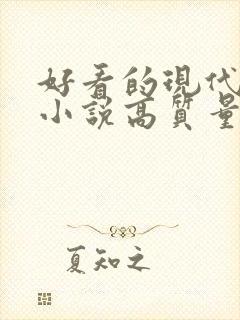 好看的現代
小說高質量
夏知之